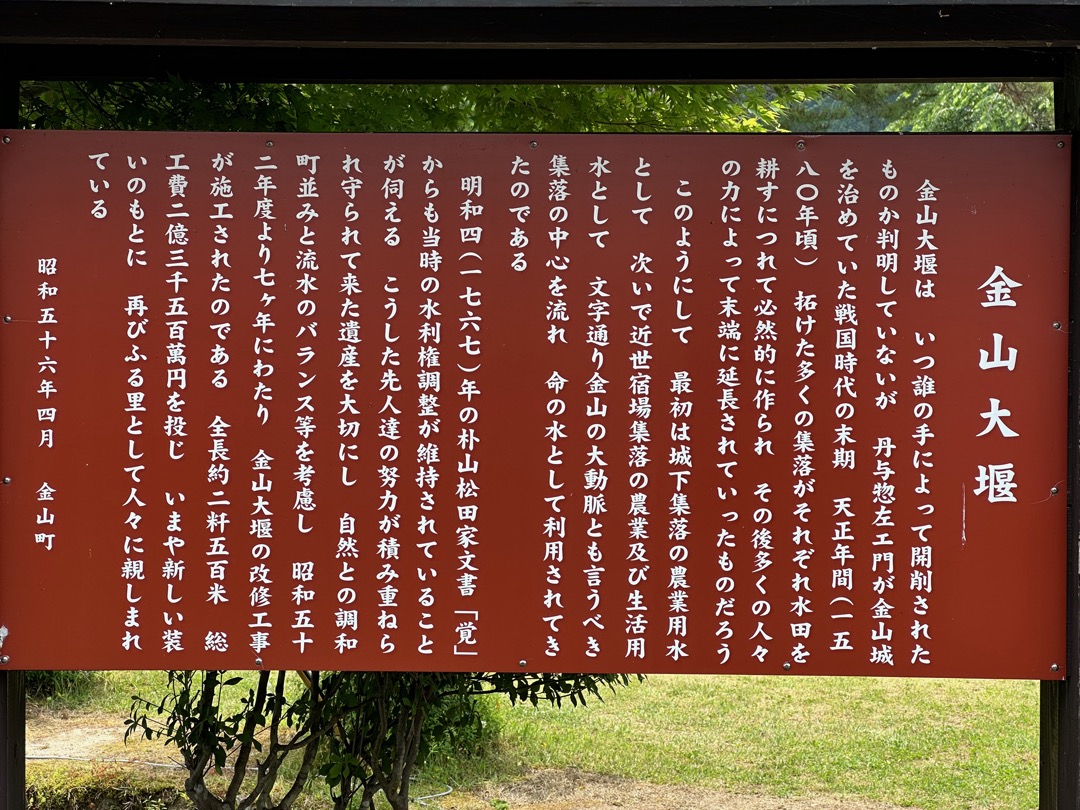 金山大堰
金山大堰は　いつ誰の手によって開削された
ものか判明していないが　丹与惣左エ門が金山城
を治めていた戦国時代の末期　天正年間(一五
八〇年頃)　拓けた多くの集落がそれぞれ水田を
耕すにつれて必然的に作られ　その後多くの人々
の力によって末端に延長されていったものだろう
このようにして　最初は城下集落の農業用水
として　次いで近世宿場集落の農業及び生活用
水として　文字通り金山の大動脈とも言うべき
集落の中心を流れ　命の水として利用されてき
たのである
明和四(一七六七)年の朴山松田家文書「覚」
からも当時の水利権調整が維持されていること
が伺える　こうした先人達の努力が積み重ねら
れ守られて来た遺産を大切にし　自然との調和
町並みと流水のバランス等を考慮し　昭和五十
二年度より七ヶ年にわたり　金山大堰の改修工事
が施工されたのである　全長約二粁五百米　総
工費二億三千五百萬円を投じ　いまや新しい装
いのもとに　再びふる里として人々に親しまれ
ている
昭和五十六年四月　金山町